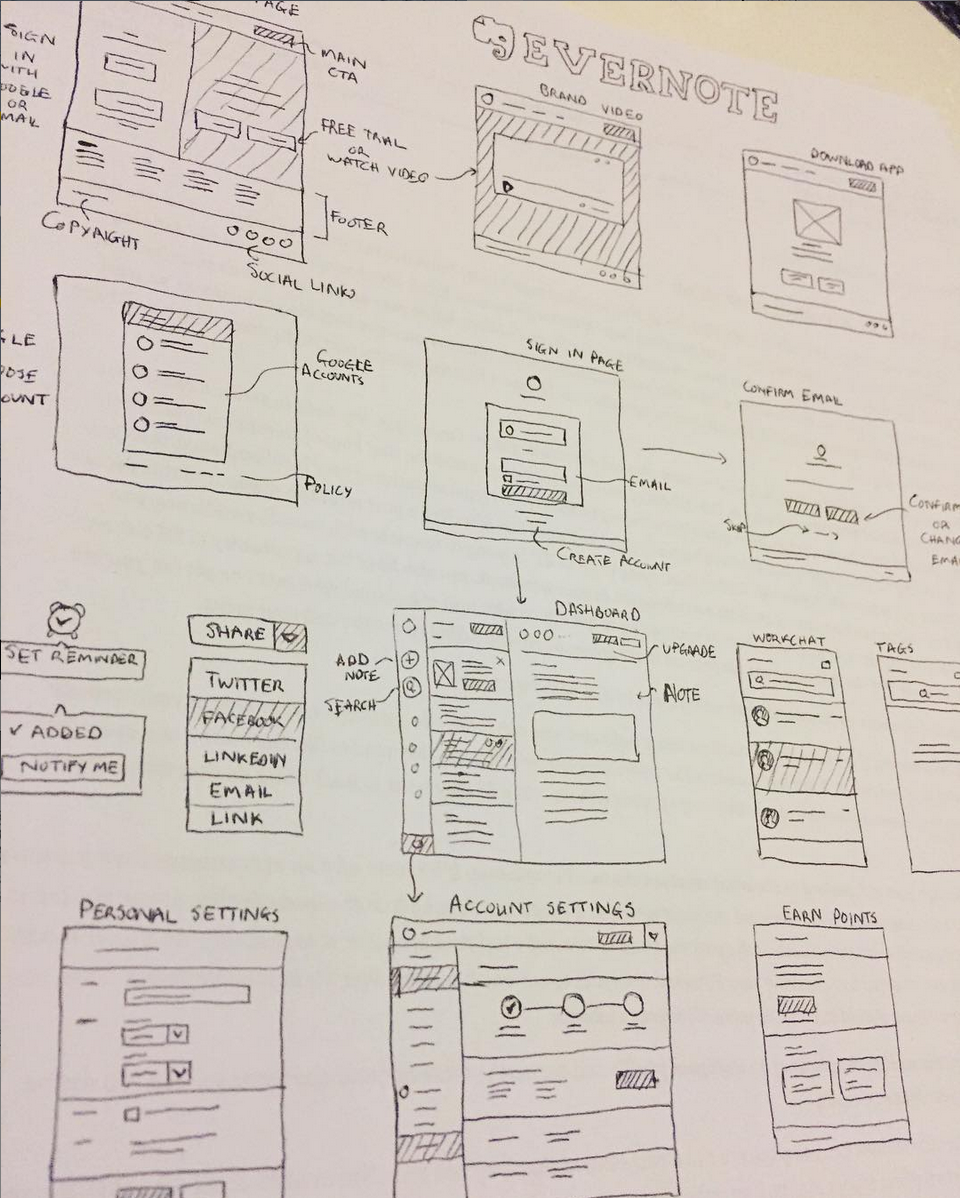 PAGE
SIGN
IN
WITH
OR
MAIN
CTA
FREE TRIAL
OR
WATCH VIDEO
FOOTER
COPYRIGHT
SOCIAL LINKS
EVERNOTE
BRAND VIDEO
DOWNLOAD APP
GOOGLE
ACCOUNTS
POLICY
SIGN IN PAGE
EMAIL
CREATE ACCOUNT
CONFIRM EMAIL
SKIP
CONFIRM
OR
SET REMINDER
✓ ADDED
NOTIFY ME
SHARE
TWITTER
FACEBOOK
LINKEDIN
EMAIL
LINK
DASHBOARD
ADD
NOTE
SEARCH
UPGRADE
NOTE
WORKCHAT
TAGS
PERSONAL SETTINGS
ACCOUNT SETTINGS
EARN POINTS